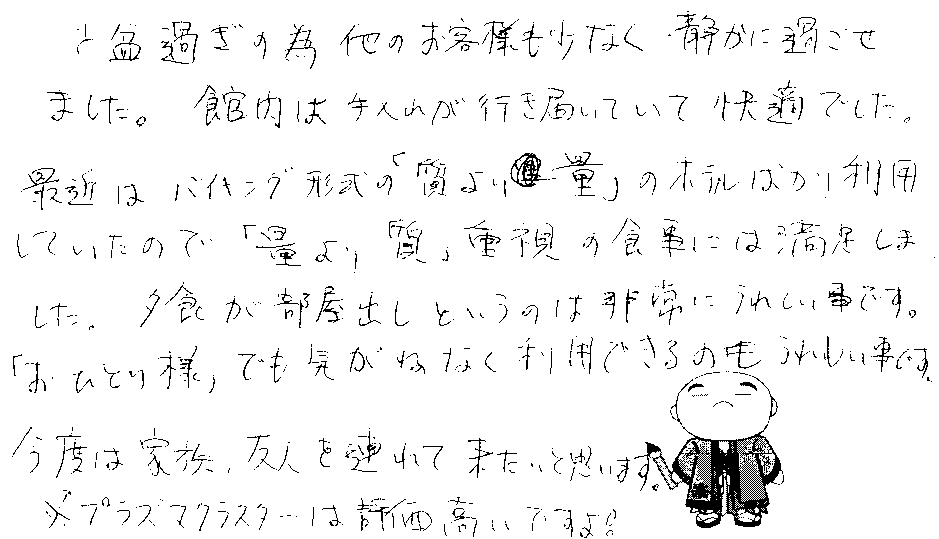 お盆過ぎの為他のお客様も少なく静かに過ごせ
ました。館内は手入れが行き届いていて快適でした。
最近はバイキング形式の「質より量」のホテルばかり利用
していたので「量より質」重視の食事には満足しま
した。夕食が部屋出しというのは非常にうれしい事です。
「おひとり様」でも気がねなく利用できるのもうれしい事です。
今度は家族、友人を連れて来たいと思います。
※プラズマクラスターは評価高いですよ!